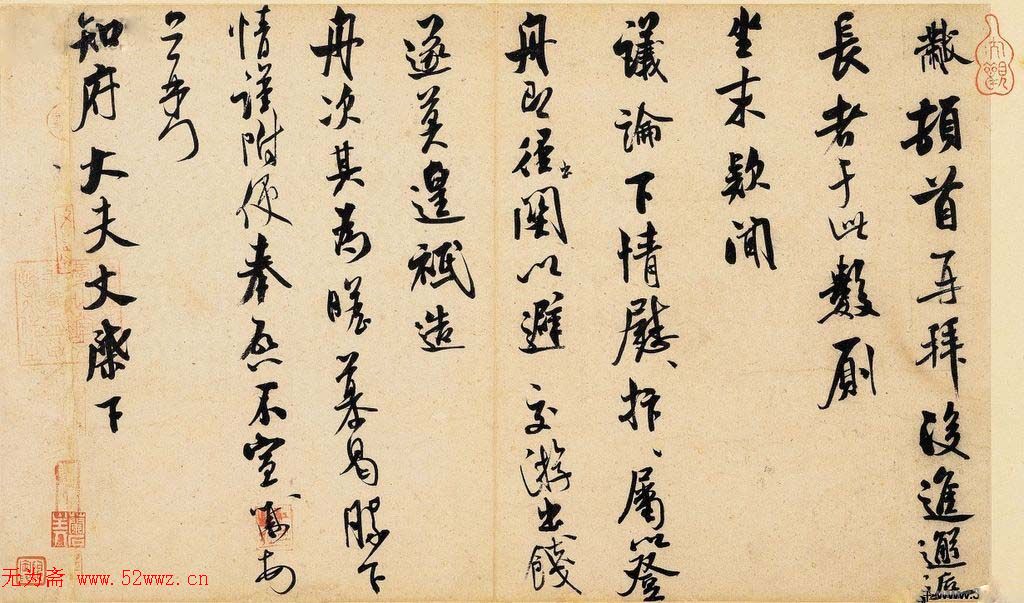 黻頓首再拜後進邂逅
長者于此數廁
坐末款聞
議論下情慰、抃、屬以登
舟即徑出關以避交游出餞
遂莫遑祗造
舟次其為瞻慕曷勝下
情謹附便奉啟不宣黻
知府大夫丈棨下
无为斋 www.52wwz.cn